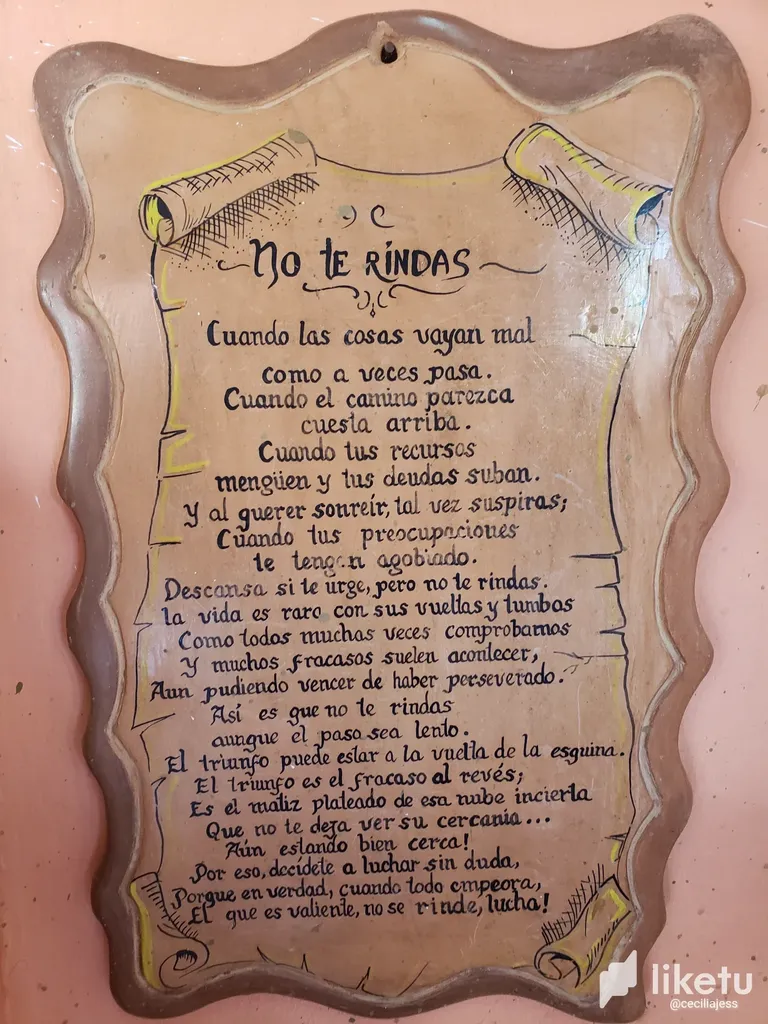 No te rindas
Cuando las cosas vayan mal
como a veces pasa.
Cuando el camino parezca
cuesta arriba.
Cuando tus recursos
mengüen y tus deudas suban.
Y al querer sonreír, tal vez suspiras;
Cuando tus preocupaciones
te tengan agobiado.
Descansa si te urge, pero no te rindas.
la vida es rara con sus vueltas y tumbos
Como todos muchas veces comprobamos
Y muchos fracasos suelen acontecer,
Aun pudiendo vencer de haber perseverado.
Así es que no te rindas
aunque el paso sea lento.
El triunfo puede estar a la vuelta de la esquina.
El triunfo es el fracaso al revés;
Es el matiz plateado de esa nube incierta
Que no te deja ver su cercanía...
Aún estando bien cerca!
Por eso, decídete a luchar sin duda,
Porque en verdad, cuando todo empeora,
El que es valiente, no se rinde, lucha!
liketu
@cecillajess